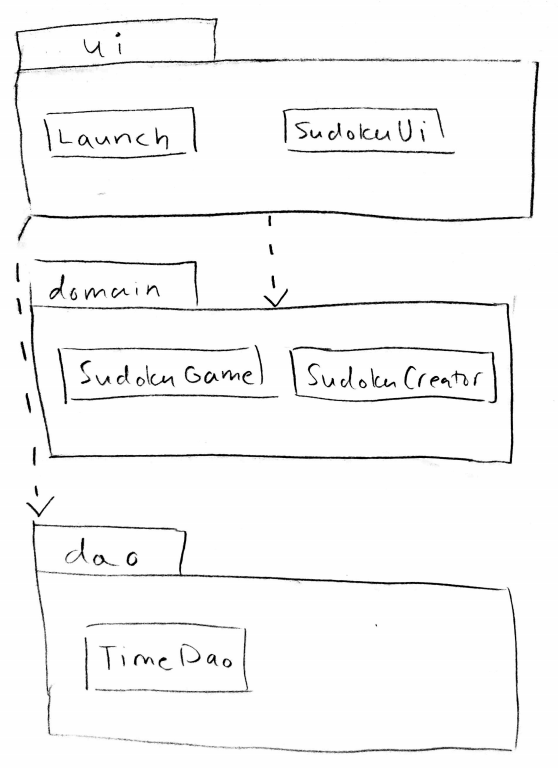 ui
Launch
SudokuUi
domain
SudokuGame
SudokuCreator
dao
TimeDao